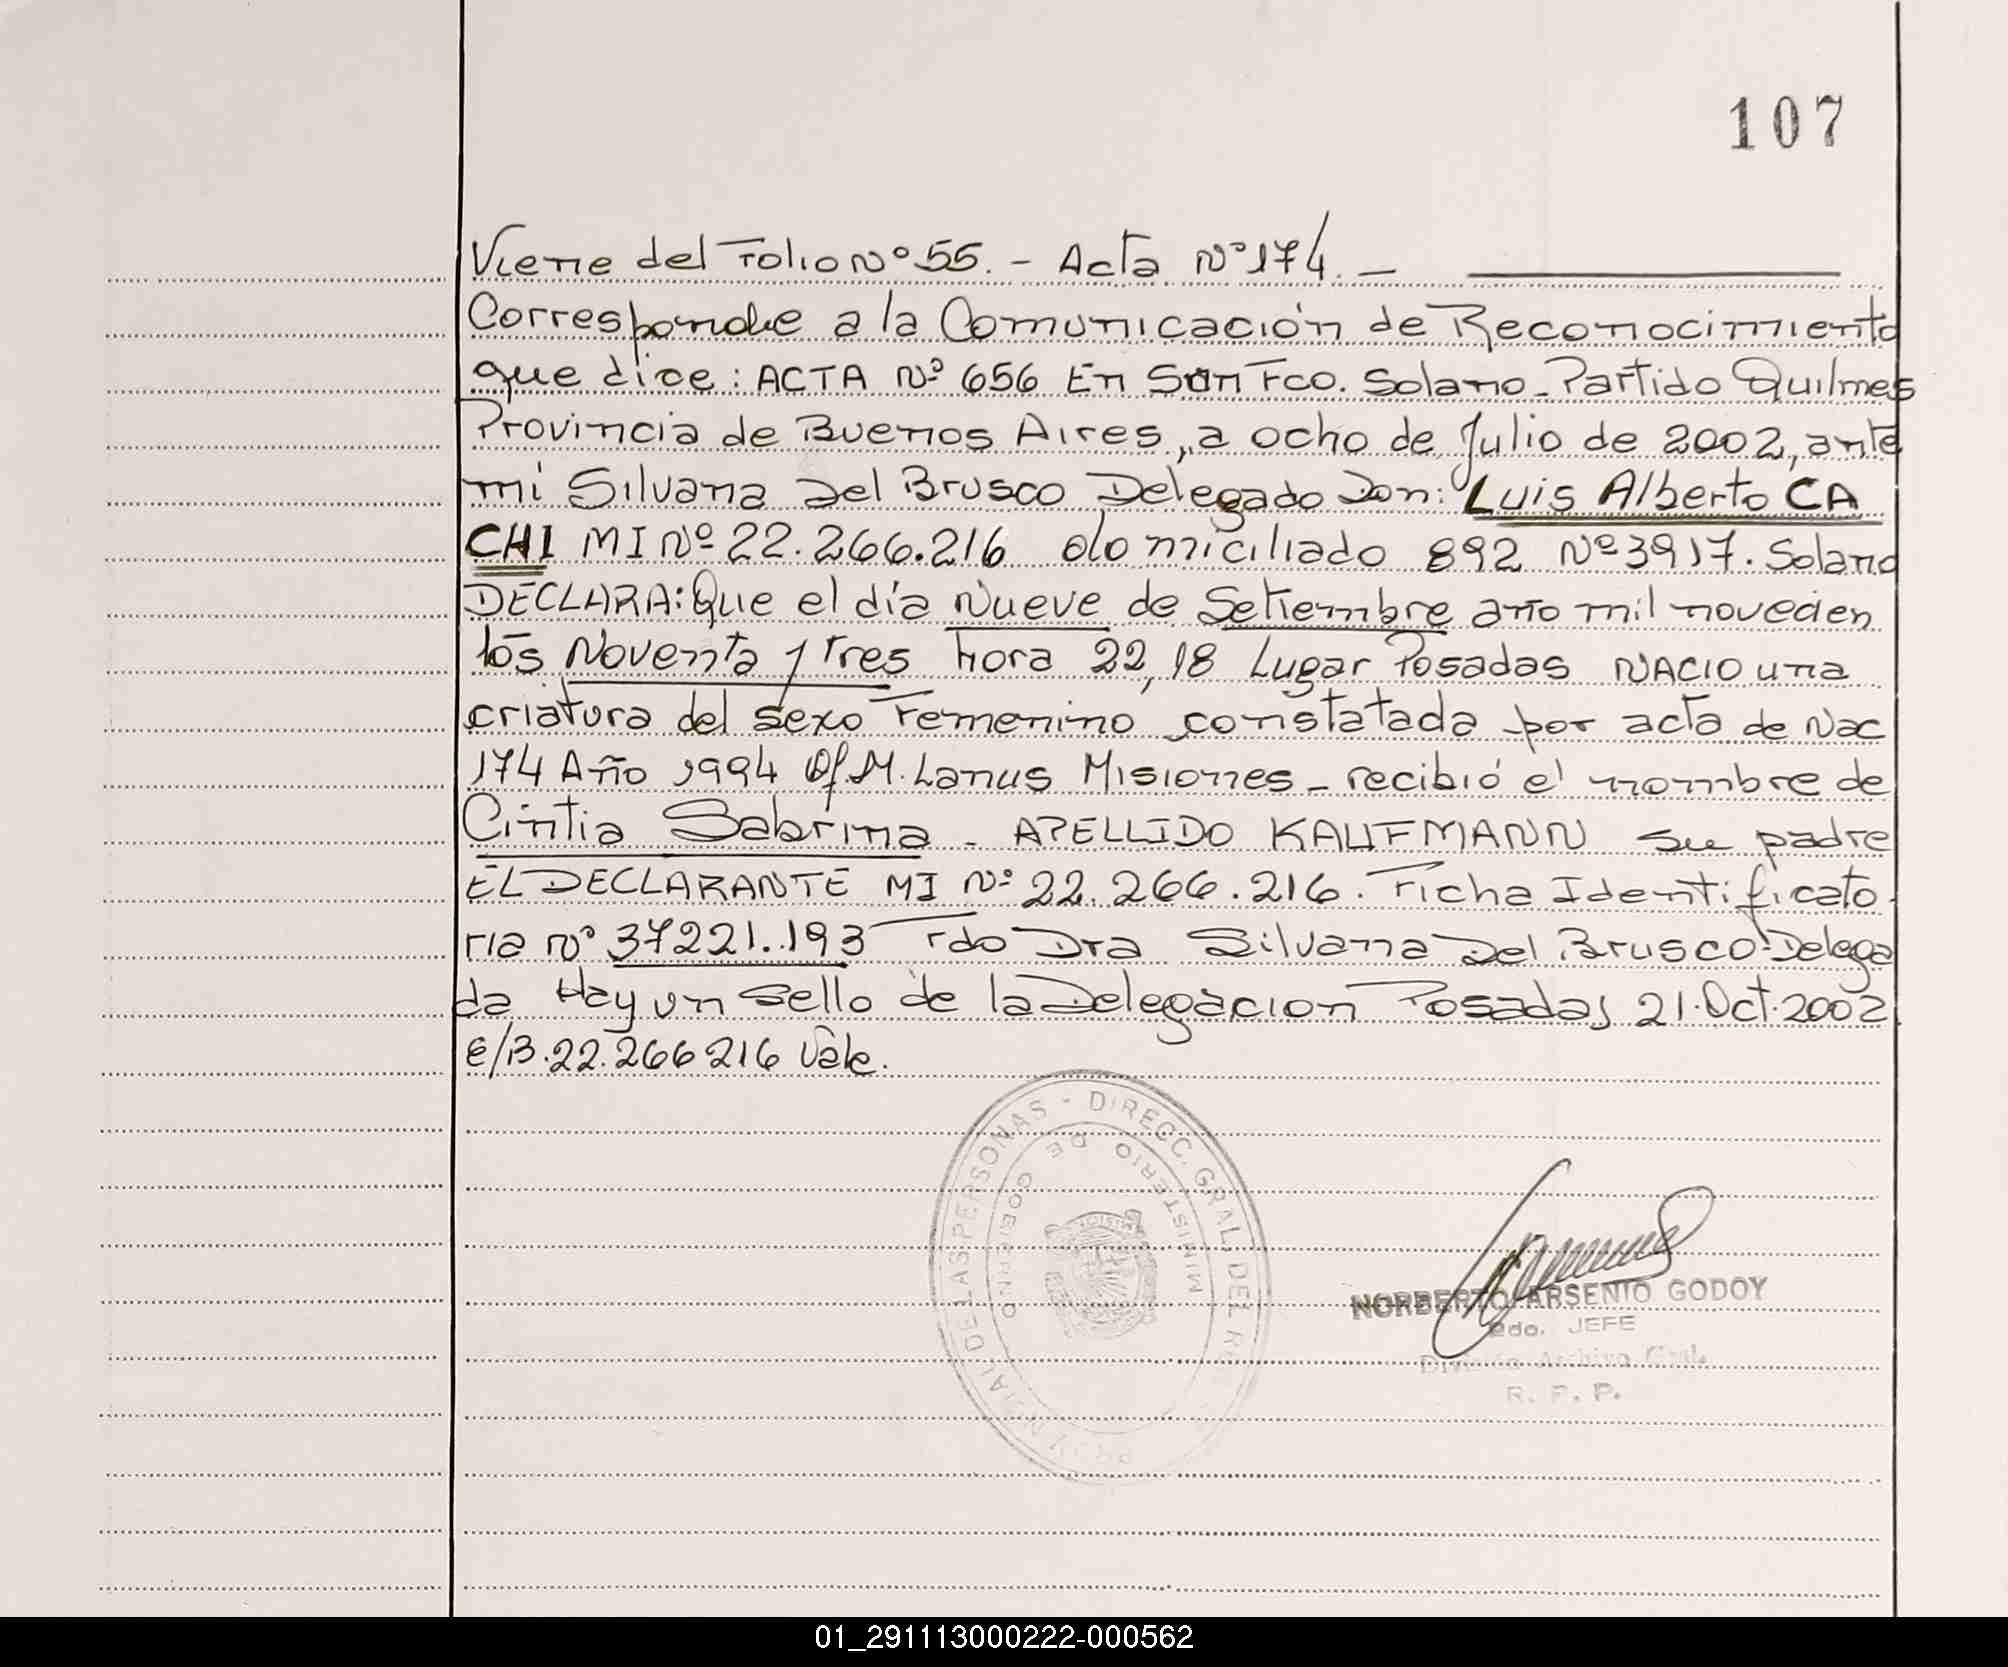 107
Viene del Folio Nº 55. - Acta Nº 174. -
Corresponde a la Comunicación de Reconocimiento
que dice: ACTA Nº 656 En San Fco. Solano - Partido Quilmes
Provincia de Buenos Aires, a ocho de Julio de 2002, ante
mi Silvana Del Brusco Delegado Don: Luis Alberto CA
CHI MI Nº 22.266.216 domiciliado 892 Nº 3917. Solano
DECLARA: Que el día Nueve de Setiembre año mil novecien
tos Noventa y tres hora 22,18 Lugar Posadas NACIO una
criatura del sexo Femenino constatada por acta de Nac
174 Año 1994 Of. M. Lanus Misiones - recibió el nombre de
Cintia Sabrina - APELLIDO KAUFMANN su padre
EL DECLARANTE MI Nº 22.266.216. Ficha Identificato
ria Nº 37221.193 Fdo Dra Silvana Del Brusco - Delega
da Hay un sello de la Delegacion Posadas 21.Oct.2002
E/B.22.266216 Vale.
PROVINCIAL DE LAS PERSONAS - DIRECC. GRAL. DEL
MINISTERIO DE GOBIERNO
NORBERTO ARSENIO GODOY
2do. JEFE
División Archivo Gral.
R. P. P.
01_291113000222-000562